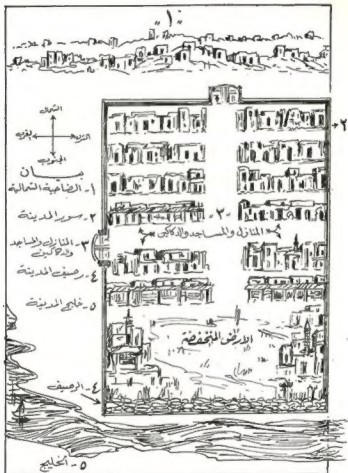 -١-
الشمال
الشرق
الغرب
الجنوب
بيان
١- الضاحية الشمالية
٢- سور المدينة
٣- المنازل والمساجد
والدكاكين
٤- رصيف المدينة
٥- خليج المدينة
٢
-٣-
المنازل والمساجد والدكاكين
الأرض المنخفضة
٤- الرصيف
٥- الخليج